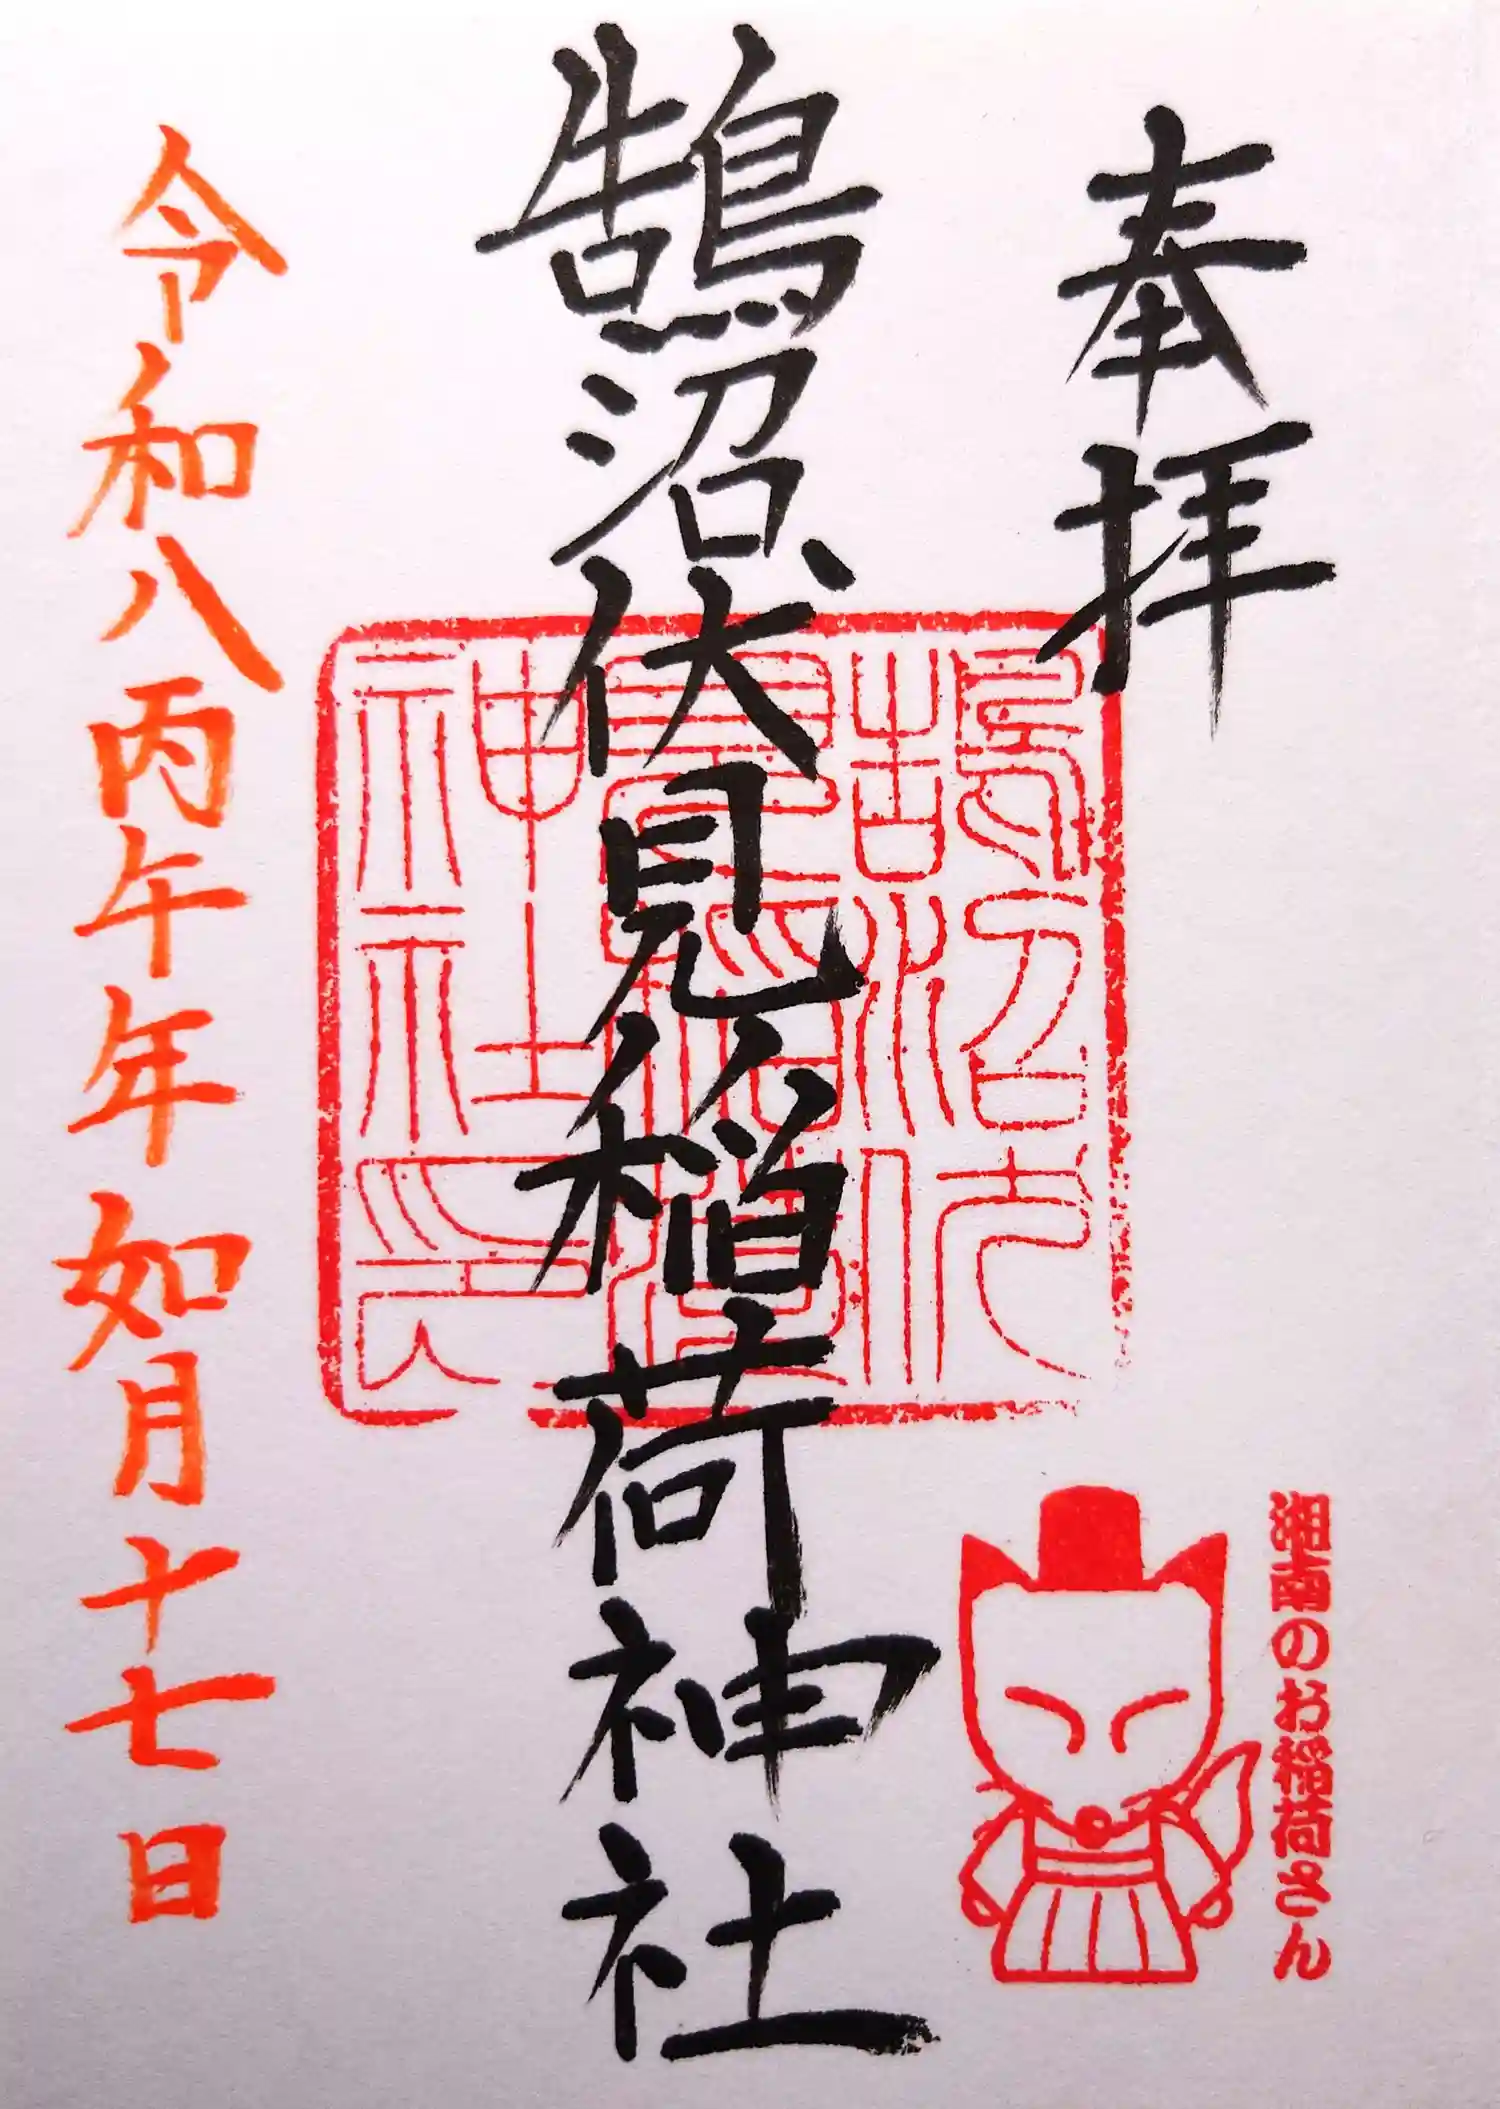 奉拝
湘南のお稲荷さん
鵠沼伏見稲荷神社
鵠沼伏
見稲荷
神社印
令和八丙午年如月十七日